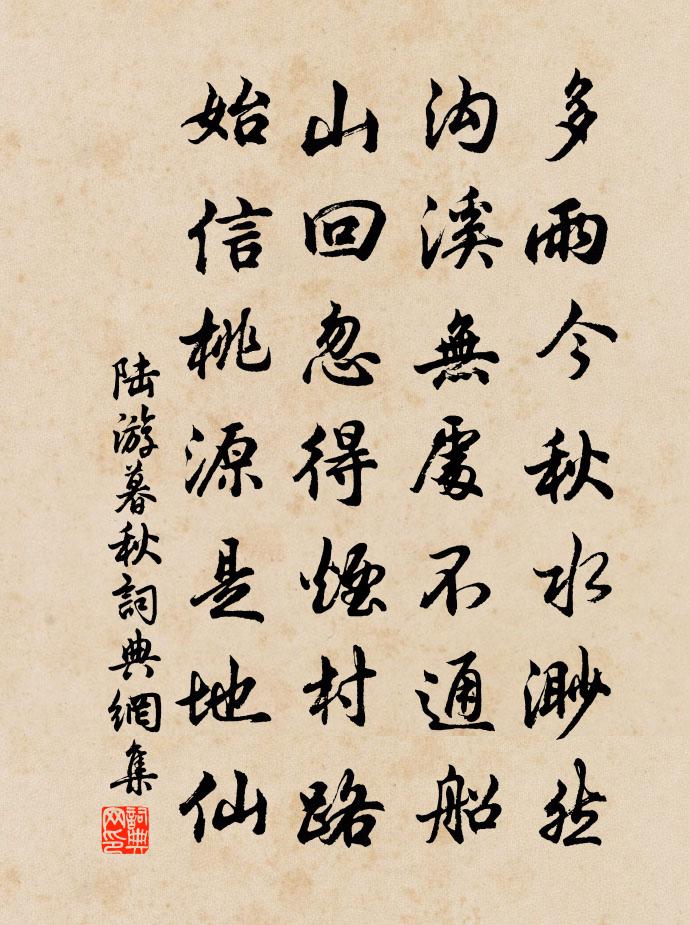 多雨今秋水渺然
沟溪無處不通船
山回忽得煙村路
始信桃源是地仙
陆游暮秋詞典網集
詞典网印